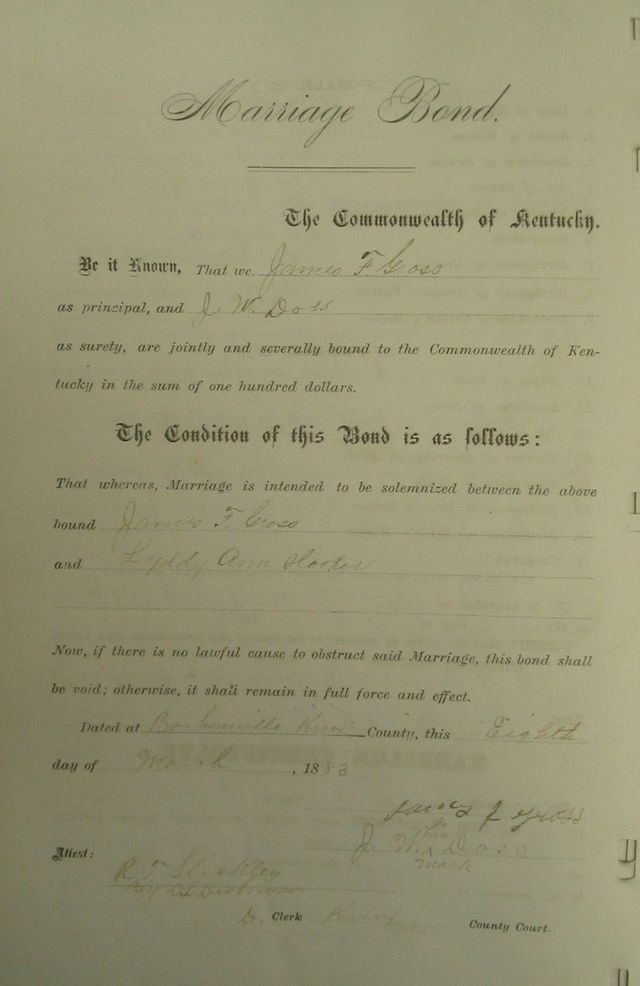 Marriage Bond.
The Commonwealth of Kentucky.
Be it Known, That we, James F. Gross
as principal, and J. W. Doss
as surety, are jointly and severally bound to the Commonwealth of Ken-
tucky in the sum of one hundred dollars.
The Condition of this Bond is as follows:
That whereas, Marriage is intended to be solemnized between the above
bound James F. Gross
and Lyddy Ann Hooker
Now, if there is no lawful cause to obstruct said Marriage, this bond shall
be void; otherwise, it shall remain in full force and effect.
Dated at Barbourville Knox County, this Eighth
day of March, 1883
James F Gross
his
J. W. x Doss
mark
Attest:
R. F.
By
D. Clerk Knox County Court.